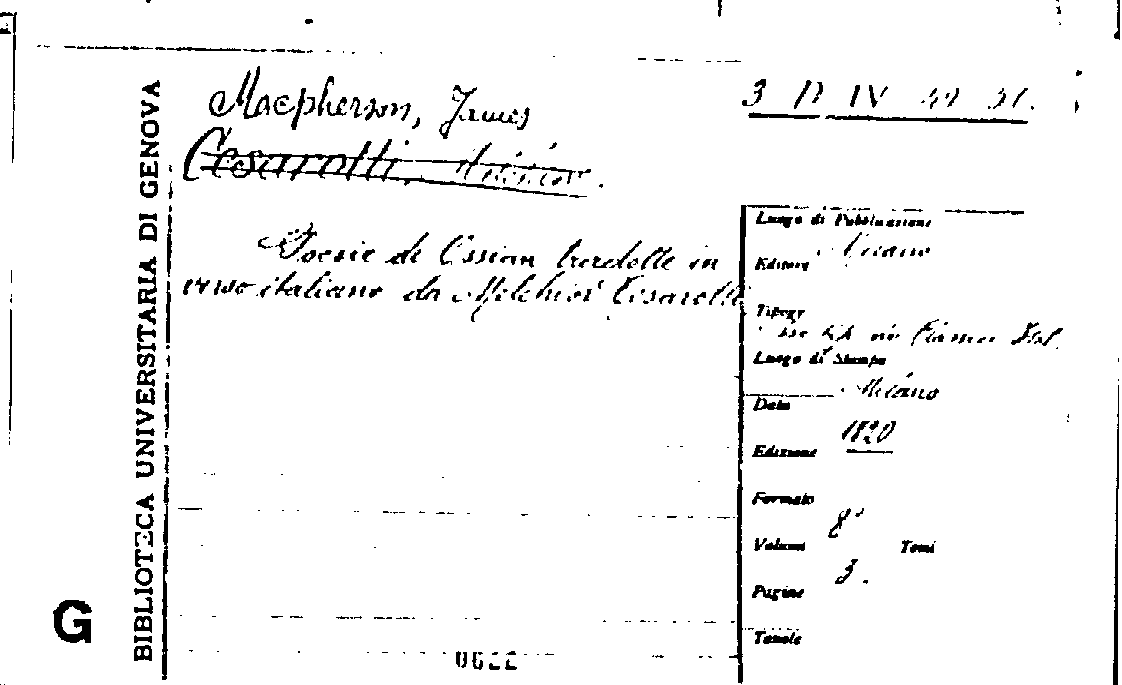 BIBLIOTECA UNIVERSITARIA DI GENOVA
G
Macpherson, James
3 D IV
Cesarotti,
Poesie di Ossian tradotte in
verso italiano da Melchior Cesarotti
Luogo di Pubblicazione
Milano
Editore
Tipogr
Luogo di Stampa
Milano
Data
1820
Edizione
Formato
8°
Volumi Tomi
3.
Pagine
Tavole